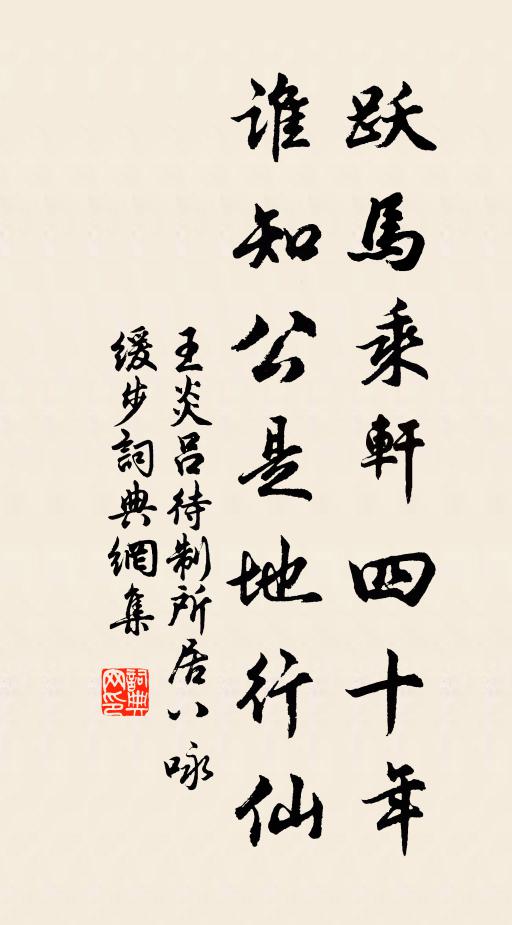 跃馬乘軒四十年
谁知公是地行仙
王炎吕待制所居八咏
缓步
詞典網集
詞典
网印